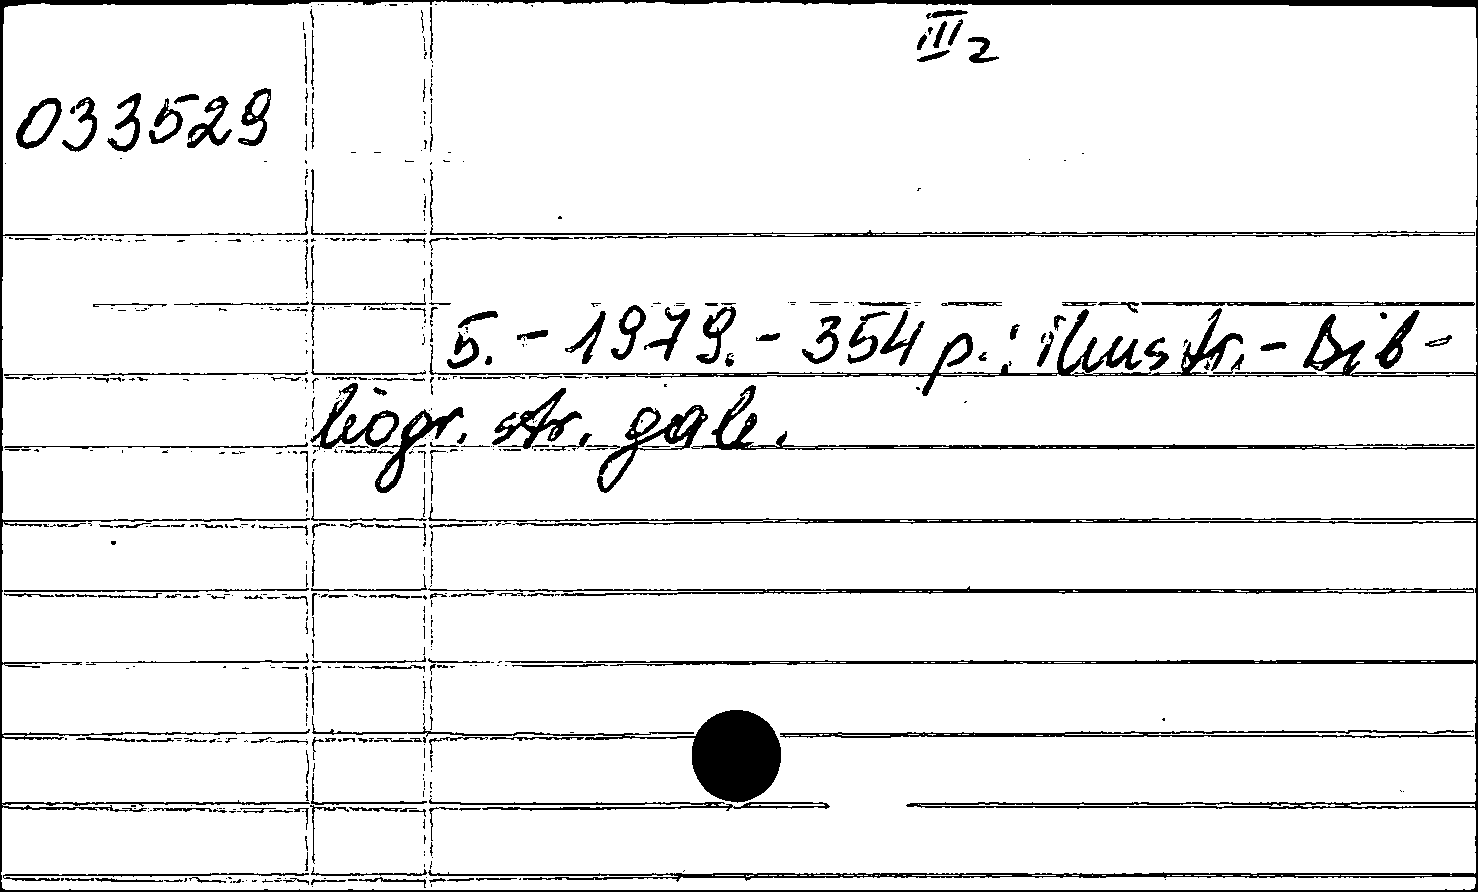 III2
033529
5. - 1979. - 354 p.: iliustr. - Bib-
liogr. str. gale.